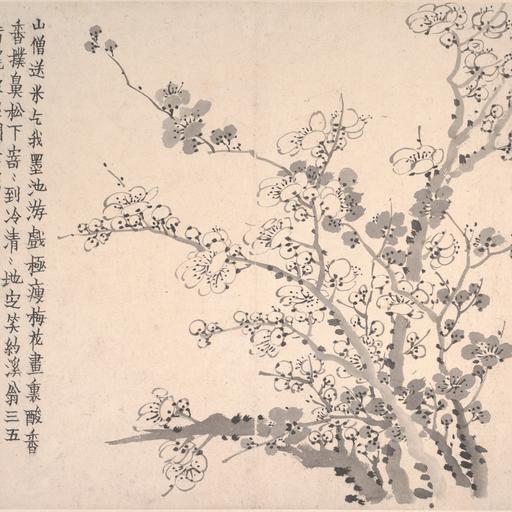 山僧送米乞我墨池游戲極瘦梅花畫裏酸香
香撲鼻松下寄〻到冷清〻地定笑約溪翁三五